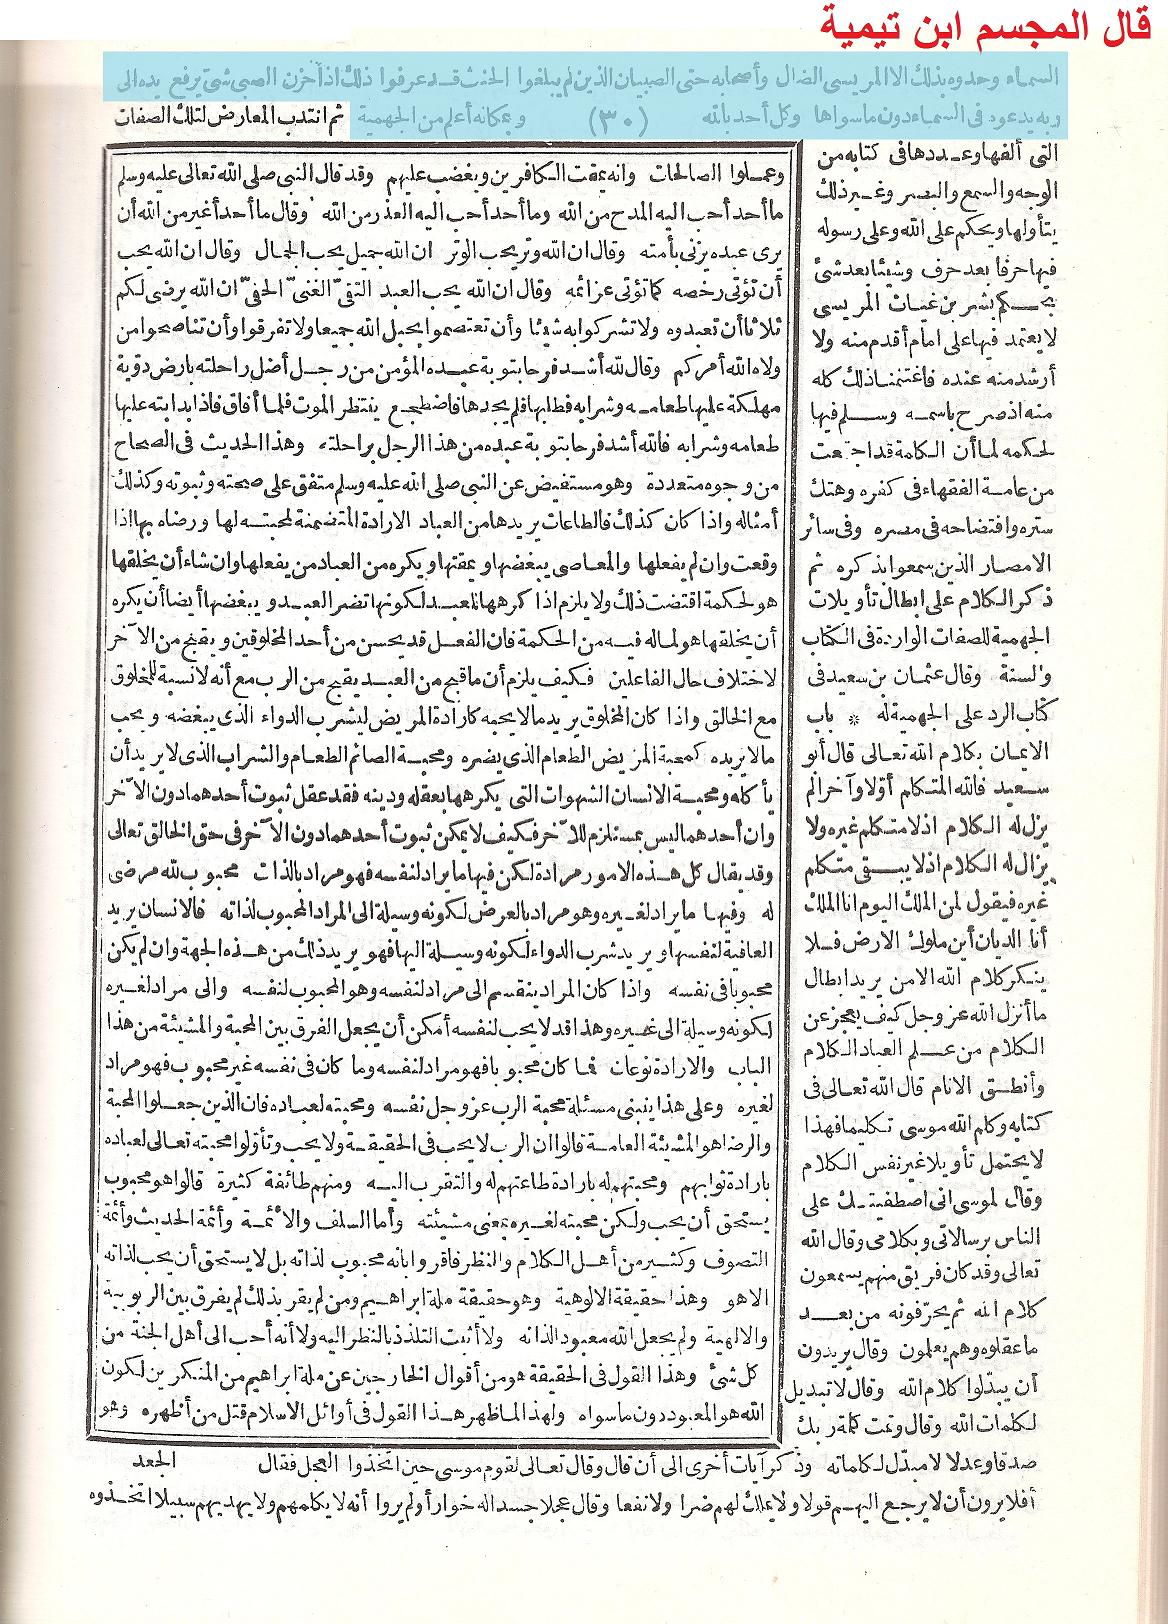 قال المجسم ابن تيمية
السماء وحدوه بذلك الا المريسى الضال وأصحابه حتى الصبيان الذين لم يبلغوا الحنث قد عرفوا ذلك اذا حزن الصبى شئ يرفع يده الى
ربه يدعوه فى السماء دون ما سواها وكل أحد بالله (٣٠) وبمكانه أعلم من الجهمية ثم انتدب المعارض لتلك الصفات
التى ألفها وعددها فى كتابه من
الوجه والسمع والبصر وغير ذلك
يتأولها ويحكم على الله وعلى رسوله
فيها حرفا بعد حرف وشيئا بعد شئ
بحكم بشر بن غياث المريسى
لا يعتمد فيها على امام أقدم منه ولا
أرشد منه عنده فاغتنمنا ذلك كله
منه اذ صرح باسمه وسلم فيها
لحكمه لما أن الكلمة قد اجتمعت
من عامة الفقهاء فى كفره وهتك
ستره وافتضاحه فى مصره وفى سائر
الامصار الذين سمعوا بذكره ثم
ذكر الكلام على ابطال تأويلات
الجهمية للصفات الواردة فى الكتاب
والسنة وقال عثمان بن سعيد فى
كتاب الرد على الجهمية له * باب
الايمان بكلام الله تعالى قال أبو
سعيد فالله المتكلم أولا وآخرا لم
يزل له الكلام اذ لا متكلم غيره ولا
يزال له الكلام اذ لا يبقى متكلم
غيره فيقول لمن الملك اليوم انا الملك
أنا الديان أين ملوك الارض فلا
ينكر كلام الله الا من يريد ابطال
ما أنزل الله عز وجل كيف يعجز عن
الكلام من علم العباد الكلام
وأنطق الانام قال الله تعالى فى
كتابه وكلم الله موسى تكليما فهذا
لا يحتمل تأويلا غير نفس الكلام
وقال لموسى انى اصطفيتك على
الناس برسالاتى وبكلامى وقال الله
تعالى وقد كان فريق منهم يسمعون
كلام الله ثم يحرّفونه من بعد
ما عقلوه وهم يعلمون وقال يريدون
أن يبدّلوا كلام الله وقال لا تبديل
لكلمات الله وقال وتمت كلمة ربك
صدقا وعدلا لا مبدّل لكلماته وذكر آيات أخرى الى أن قال وقال تعالى لقوم موسى حين اتخذوا العجل فقال
أفلا يرون أن لا يرجع اليهم قولا ولا يملك لهم ضرا ولا نفعا وقال عجلا جسدا له خوار أولم يروا أنه لا يكلمهم ولا يهديهم سبيلا اتخذوه
وعملوا الصالحات وانه يمقت الكافرين ويغضب عليهم وقد قال النبى صلى الله تعالى عليه وسلم
ما أحد أحب اليه المدح من الله وما أحد أحب اليه العذر من الله وقال ما أحد أغير من الله أن
يرى عبده يزنى بأمته وقال ان الله وتر يحب الوتر ان الله جميل يحب الجمال وقال ان الله يحب
أن تؤتى رخصه كما تؤتى عزائمه وقال ان الله يحب العبد التقىّ الغنىّ الخفىّ ان الله يرضى لكم
ثلاثا أن تعبدوه ولا تشركوا به شيئا وأن تعتصموا بحبل الله جميعا ولا تفرقوا وأن تناصحوا من
ولاه الله أمركم وقال لله أشد فرحا بتوبة عبده المؤمن من رجل أضل راحلته بارض دوّية
مهلكة عليها طعامه وشرابه فطلبها فلم يجدها فاضطجع ينتظر الموت فلما أفاق فاذا بدابته عليها
طعامه وشرابه فالله أشد فرحا بتوبة عبده من هذا الرجل براحلته وهذا الحديث فى الصحاح
من وجوه متعددة وهو مستفيض عن النبى صلى الله عليه وسلم متفق على صحته وثبوته وكذلك
أمثاله واذا كان كذلك فالطاعات يريدها من العباد الارادة المتضمنة لمحبته لها ورضاه بها اذا
وقعت وان لم يفعلها والمعاصى يبغضها ويمقتها ويكره من العباد من يفعلها وان شاء أن يخلقها
هو لحكمة اقتضت ذلك ولا يلزم اذا كرهها للعبد لكونها تضر العبد ويبغضها أيضا أن يكره
أن يخلقها هو لما له فيه من الحكمة فان الفعل قد يحسن من أحد المخلوقين ويقبح من الآخر
لاختلاف حال الفاعلين فكيف يلزم أن ما قبح من العبد يقبح من الرب مع أنه لا نسبة للمخلوق
مع الخالق واذا كان المخلوق يريد ما لا يحبه كارادة المريض ليشرب الدواء الذى يبغضه ويحب
ما لا يريده كمحبة المريض الطعام الذى يضره ومحبة الصائم الطعام والشراب الذى لا يريد أن
يأكله ومحبة الانسان الشهوات التى يكرهها بعقله ودينه فقد عقل ثبوت أحدهما دون الآخر
وان أحدهما ليس بمستلزم للآخر فكيف لا يمكن ثبوت أحدهما دون الآخر فى حق الخالق تعالى
وقد يقال كل هذه الامور مرادة لكن فيها ما يراد لنفسه فهو مراد بالذات محبوب لله مرضى
له وفيها ما يراد لغيره وهو مراد بالعرض لكونه وسيلة الى المراد المحبوب لذاته فالانسان يريد
العافية لنفسها ويريد شرب الدواء لكونه وسيلة اليها فهو يريد ذلك من هذه الجهة وان لم يكن
محبوبا فى نفسه واذا كان المراد ينقسم الى مراد لنفسه وهو المحبوب لنفسه والى مراد لغيره
لكونه وسيلة الى غيره وهذا قد لا يحب لنفسه أمكن أن يجعل الفرق بين المحبة والمشيئة من هذا
الباب والارادة نوعان فما كان محبوبا فهو مراد لنفسه وما كان فى نفسه غير محبوب فهو مراد
لغيره وعلى هذا ينبنى مسئلة محبة الرب عز وجل نفسه ومحبته لعباده فان الذين جعلوا المحبة
والرضا هو المشيئة العامة قالوا ان الرب لا يحب فى الحقيقة ولا يحب وتأولوا محبته تعالى لعباده
بارادة ثوابهم ومحبتهم له بارادة طاعتهم له والتقرب اليه ومنهم طائفة كثيرة قالوا هو محبوب
يستحق أن يحب ولكن محبته لغيره بمعنى مشيئته وأما السلف والأئمة وأئمة الحديث وأئمة
التصوف وكثير من أهل الكلام والنظر فاقروا بانه محبوب لذاته بل لا يستحق أن يحب لذاته
الا هو وهذا حقيقة الالوهية وهو حقيقة ملة ابراهيم ومن لم يقر بذلك لم يفرق بين الربوبية
والالهية ولم يجعل الله معبودا لذاته ولا أثبت التلذذ بالنظر اليه ولا أنه أحب الى أهل الجنة من
كل شئ وهذا القول فى الحقيقة هو من أقوال الخارجين عن ملة ابراهيم من المنكرين لكون
الله هو المعبود دون ما سواه ولهذا لما ظهر هذا القول فى أوائل الاسلام قتل من أظهره وهو
الجعد